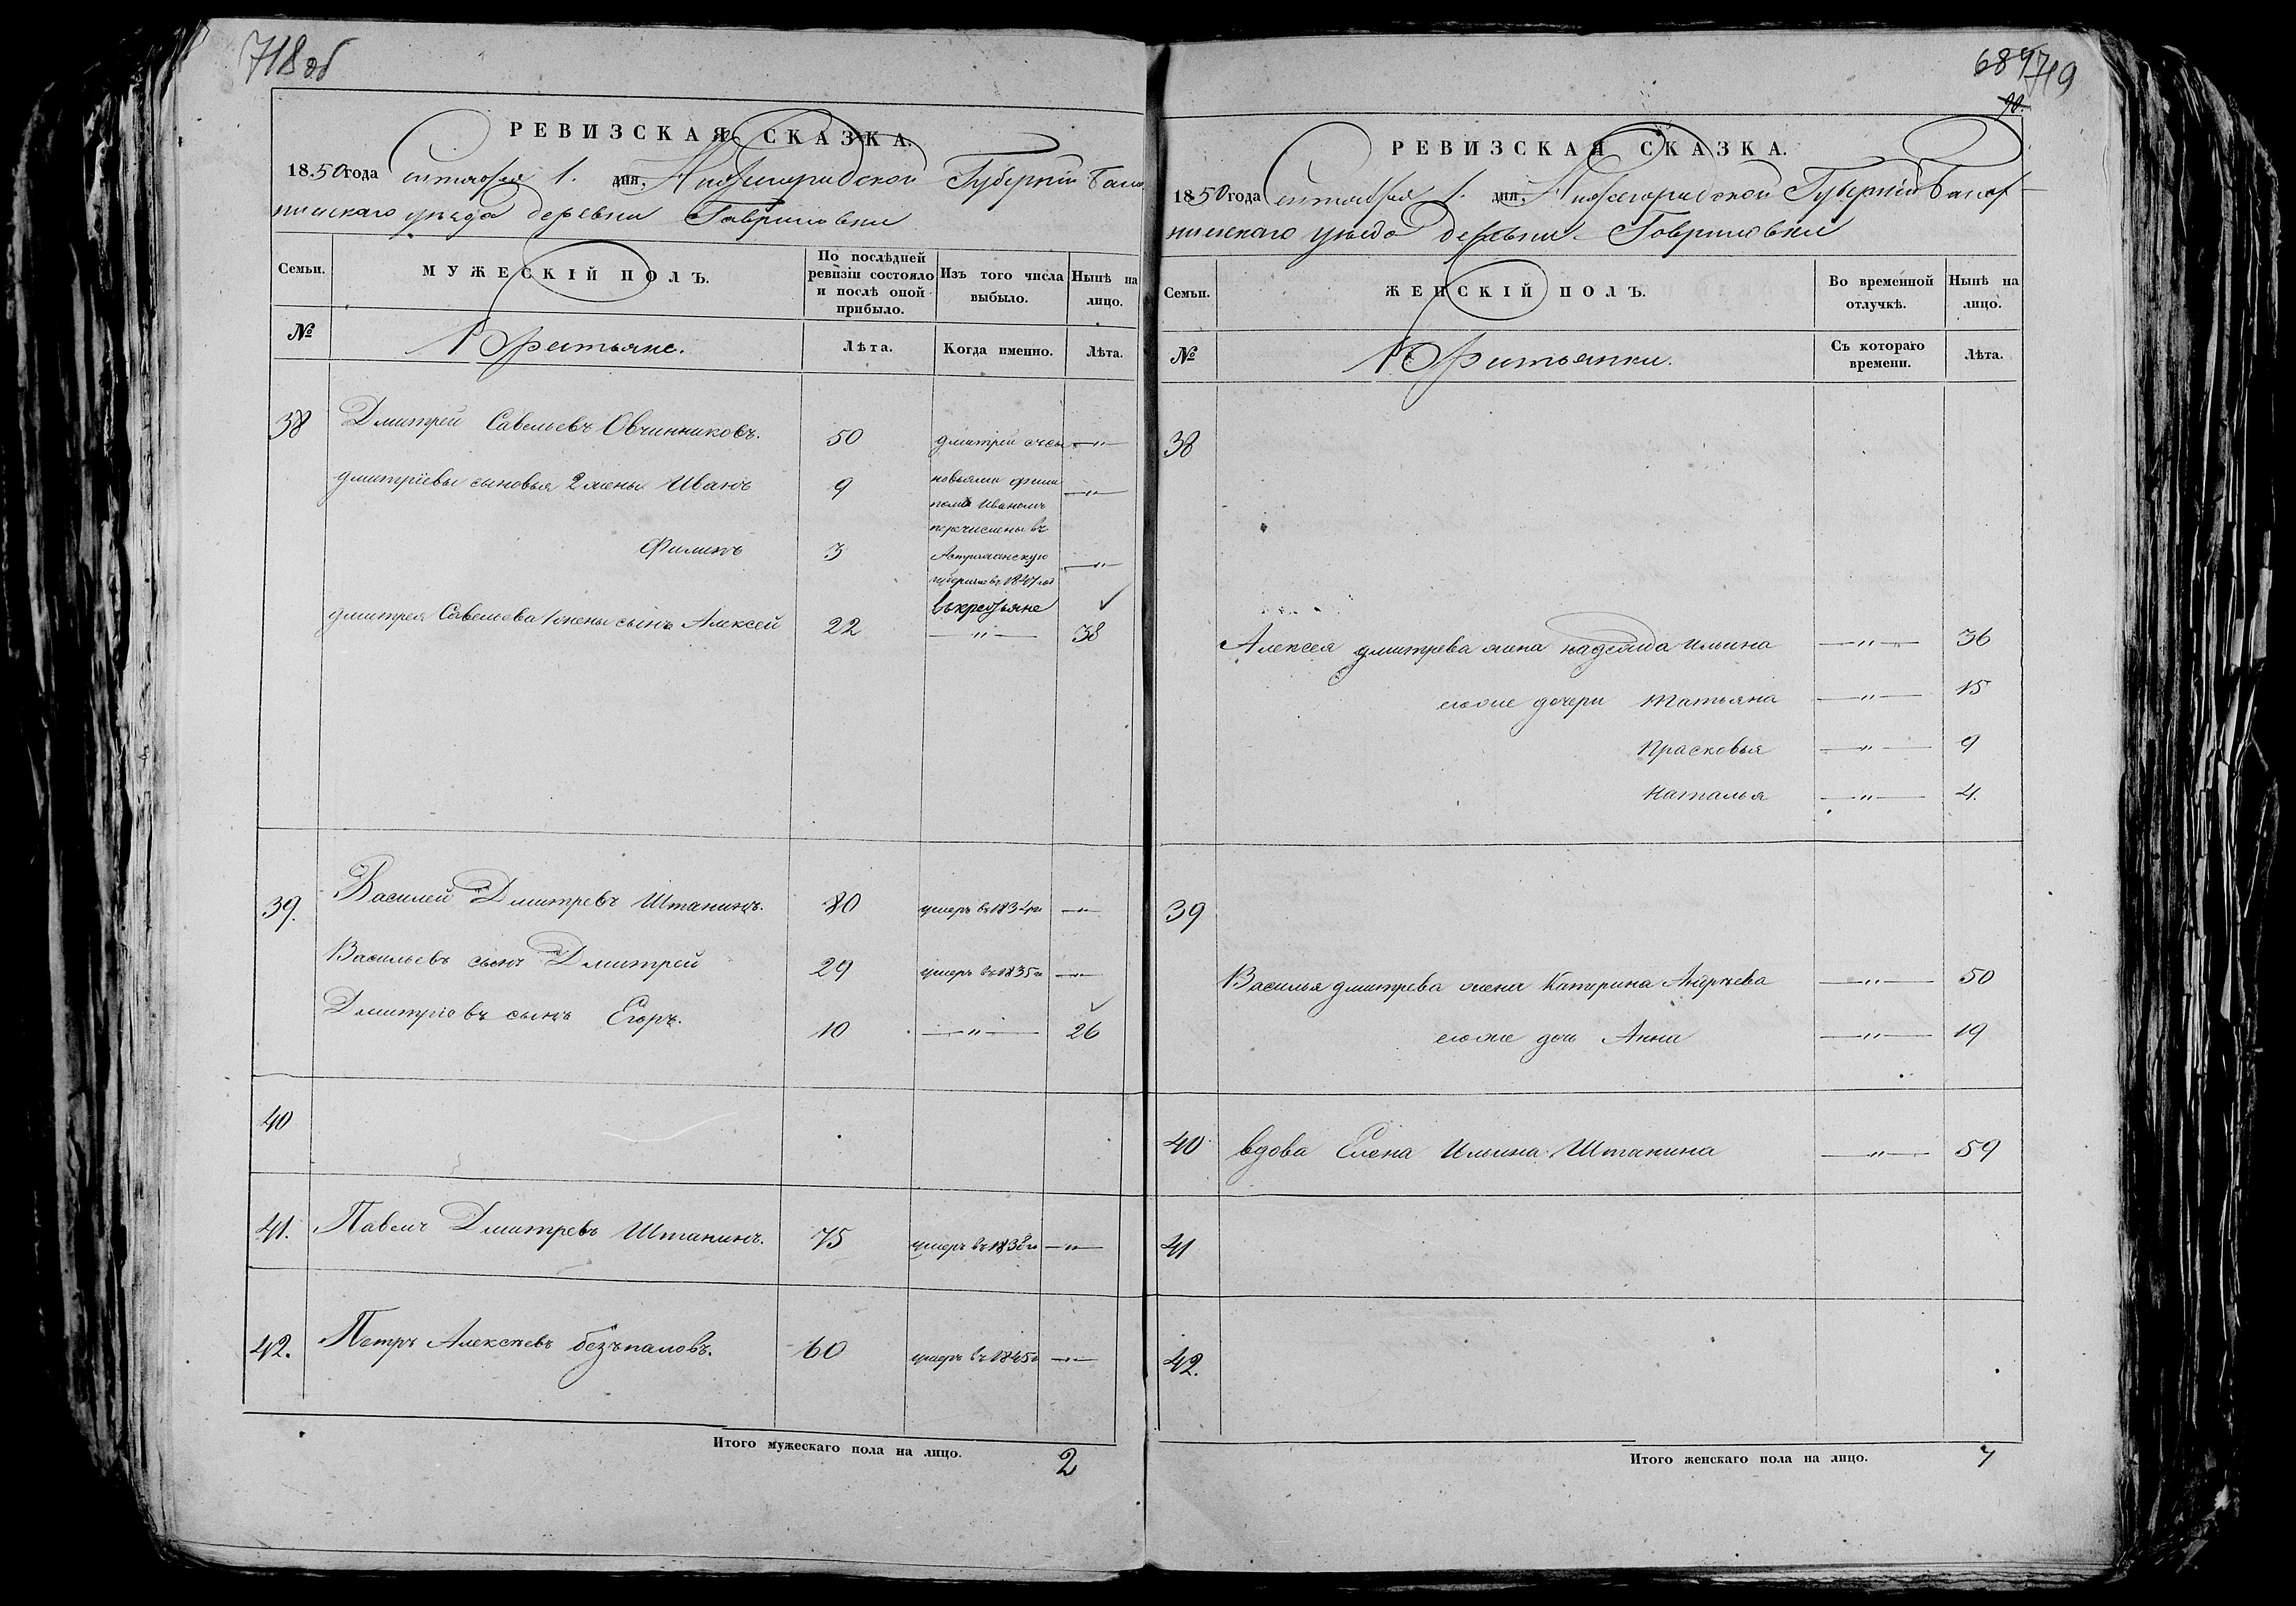 718 об
РЕВИЗСКАЯ СКАЗКА.
1850 года сентября 1. дня, Нижегородской Губернии Балах
нинскаго уѣзда деревни Гавриловки
Семьи. МУЖЕСКІЙ ПОЛЪ. По послѣдней ревизіи состояло и послѣ оной прибыло. Изъ того числа выбыло. Нынѣ на лицо.
№ Крестьяне. Лѣта. Когда именно. Лѣта.
38 Дмитрей Савельевъ Овчинниковъ. 50 дмитрей съ сы — " —
дмитріевы сыновья 2 жены Иванъ 9 новьями Фили
помъ Иваномъ — " —
перечислены въ
Филипъ 3 Астраханскую — " —
губернію въ 1847 год
въ крестьяне
дмитрея Савельева 1 жены сынъ Алексей 22 — " — 38
39. Василей Дмитревъ Штанинъ. 80 умеръ въ 1834 го — " —
Васильевъ сынъ Дмитрей 29 умеръ въ 1835 го — " —
Дмитріевъ сынъ Егоръ. 10 — " — 26
40
41. Павелъ Дмитревъ Штанинъ. 75 умеръ въ 1838 го — " —
42. Петръ Алексѣевъ безъпаловъ. 60 умеръ въ 1845 го — " —
Итого мужескаго пола на лицо. 2
684 719
РЕВИЗСКАЯ СКАЗКА.
1850 года сентября 1. дня, Нижегородской Губерніи Балах
нинскаго уѣзда деревни Гавриловки
Семьи. ЖЕНСКІЙ ПОЛЪ. Во временной отлучкѣ. Нынѣ на лицо.
№ Крестьянки. Съ котораго времени. Лѣта.
38
Алексея дмитрева жена надежда ильина — " — 36
ево же дочери Татьяна — " — 15
Прасковья — " — 9
Наталья — " — 4.
39
Василья дмитрева жена Катерина Андрѣева — " — 50
ево же дочь Анна — " — 19
40 вдова Елена Ильина Штанина — " — 59
41
42.
Итого женскаго пола на лицо. 7